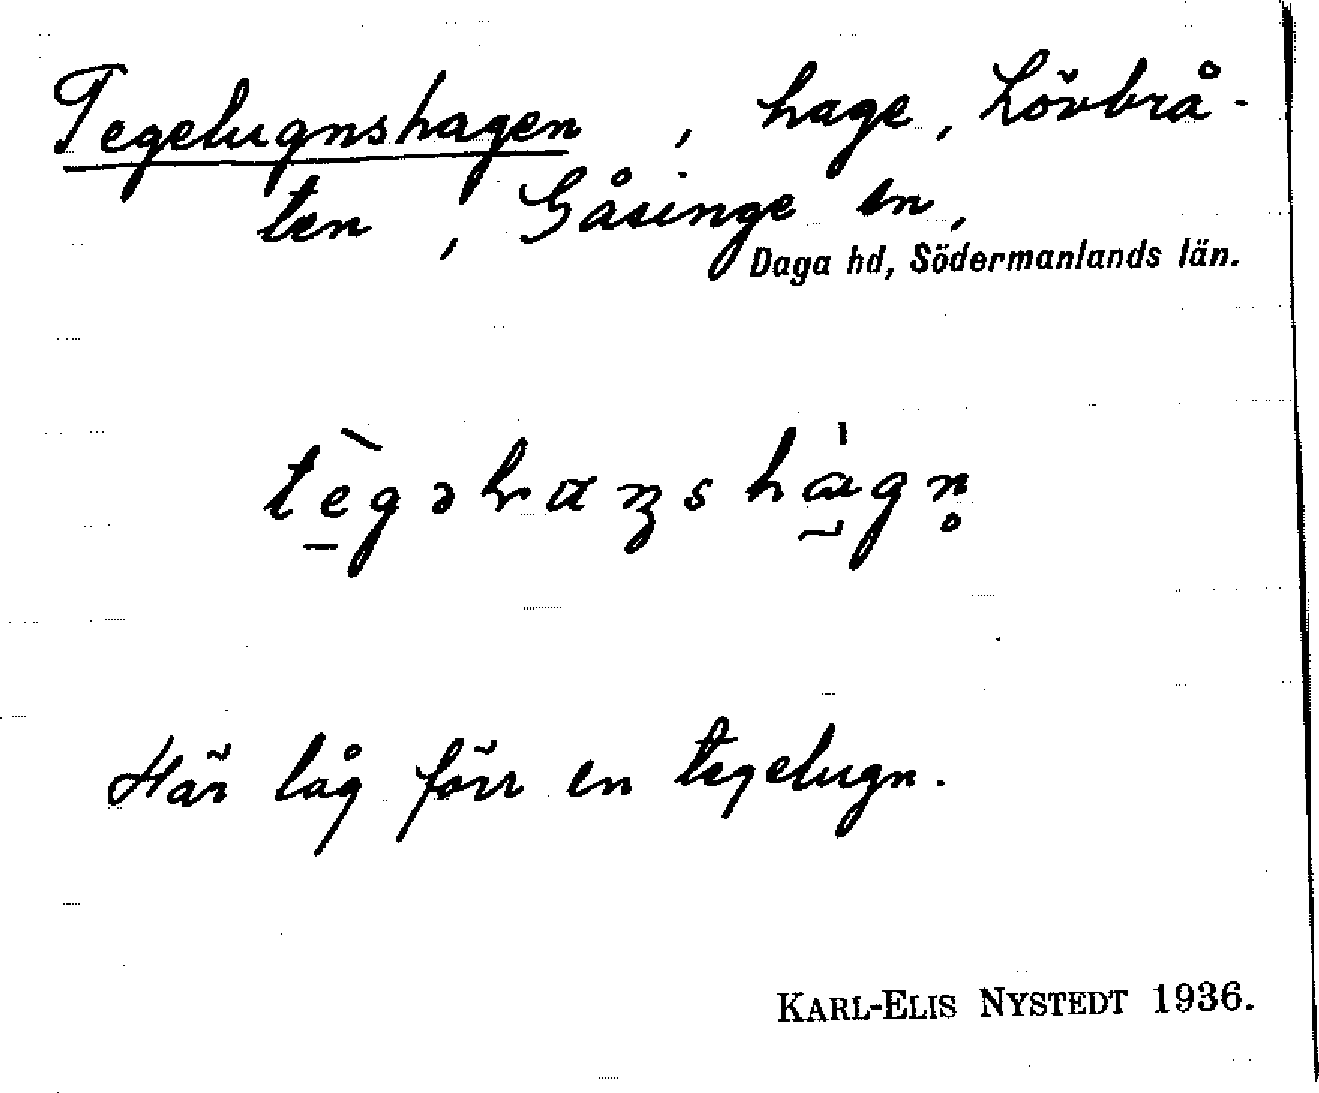 Tegelugnshagen, hage, Lövbrå-
ten, Gåsinge sn,
Daga hd, Södermanlands län.
Här låg förr en tegelugn.
KARL-ELIS NYSTEDT 1936.